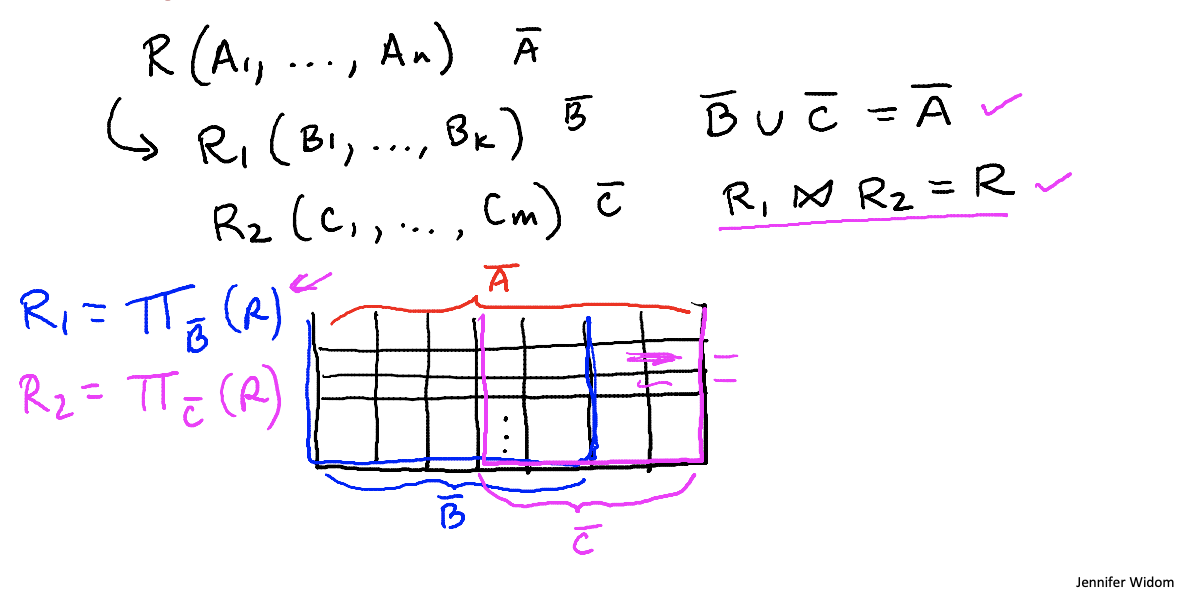 R (A₁, ..., Aₙ) A̅
R₁ (B₁, ..., Bₖ) B̅
B̅ ∪ C̅ = A̅ ✓
R₂ (C₁, ..., Cₘ) C̅
R₁ ⋈ R₂ = R ✓
A̅
R₁ = Π_B̅ (R)
R₂ = Π_C̅ (R)
B̅
C̅
Jennifer Widom